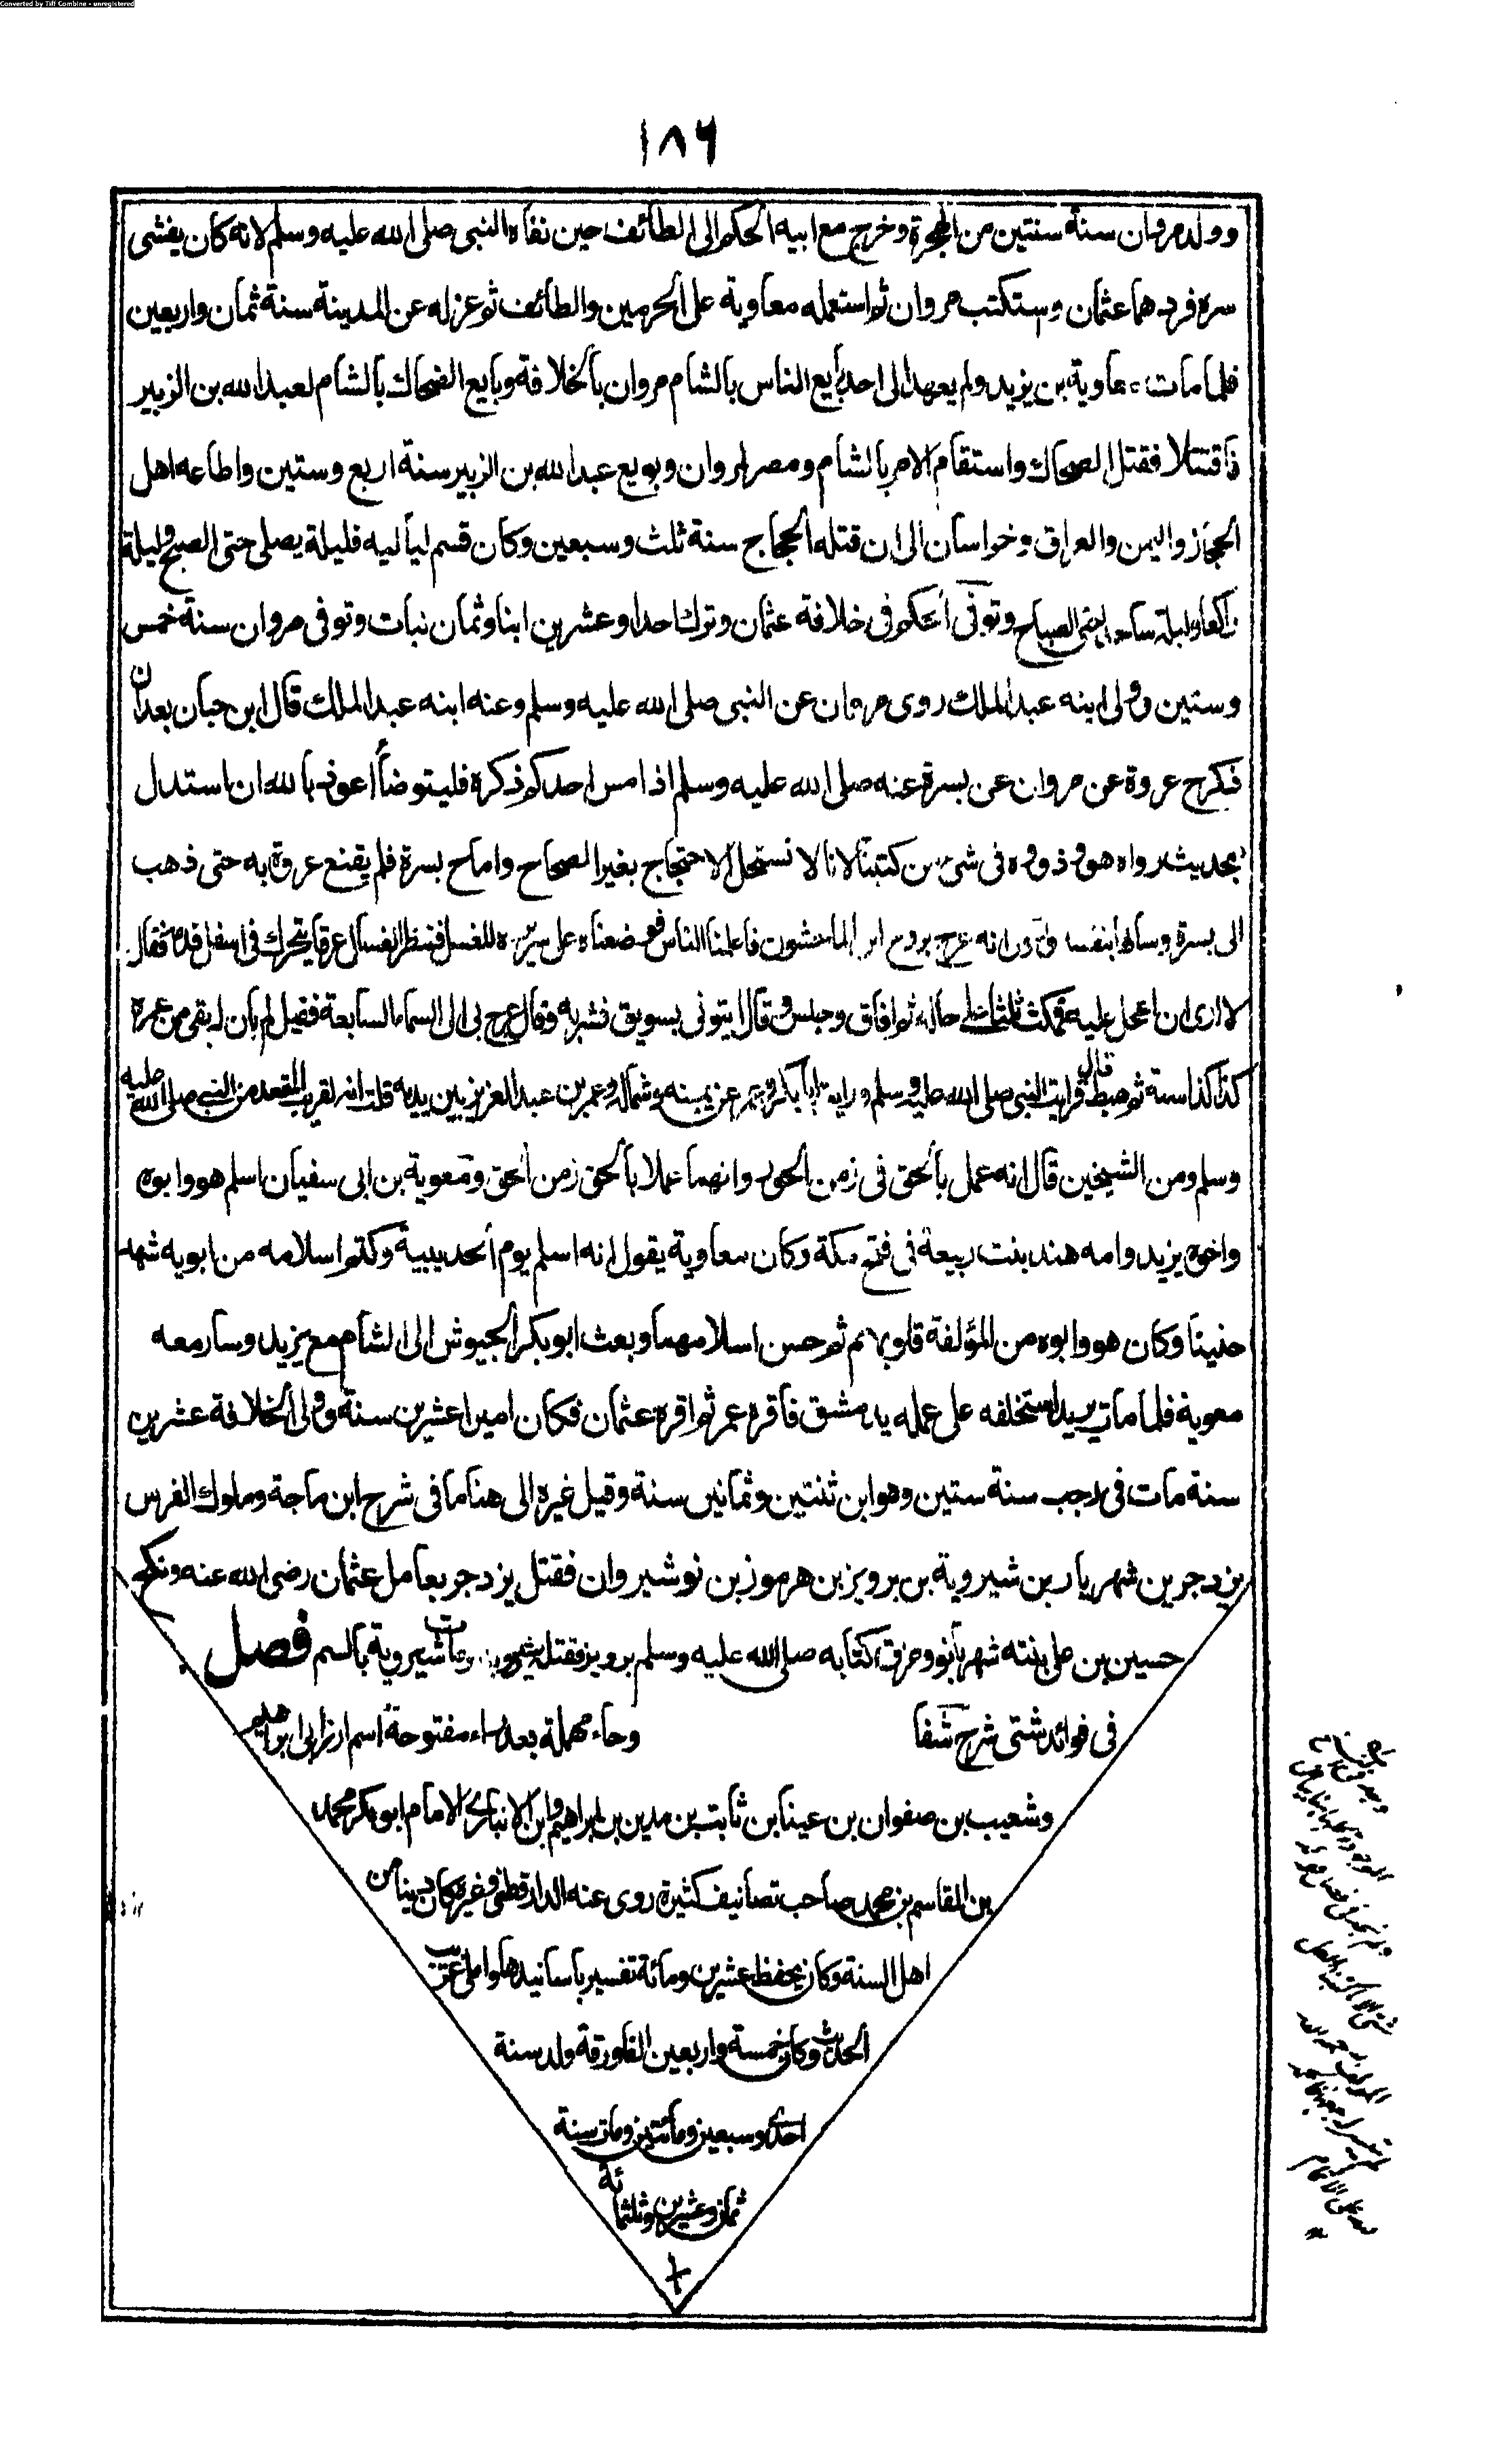 Converted by Tiff Combine - unregistered
١٨٦
وولد مروان سنة سنتين من الهجرة وخرج مع ابيه الحكم الى الطائف حين نفاه النبى صلى الله عليه وسلم لانه كان يفشى
سره فردهما عثمان وستكتب مروان ثم استعمله معاوية على الحرمين والطائف ثم عزله عن المدينة سنة ثمان واربعين
فلما مات معاوية بن يزيد ولم يعهد الى احد بايع الناس بالشام مروان بالخلافة وبايع الضحاك بالشام لعبد الله بن الزبير
فاقتتلا فقتل الضحاك واستقام الامر بالشام ومصر لمروان وبويع عبد الله بن الزبير سنة اربع وستين واطاعه اهل
الحجاز واليمن والعراق وخراسان الى ان قتله الحجاج سنة ثلث وسبعين وكان قسم لياليه فليلة يصلى حتى الصبح وليلة
راكعا وليلة ساجدا حتى الصباح وتوفى الحكم فى خلافة عثمان وترك احدا وعشرين ابنا وثمان بنات وتوفى مروان سنة خمس
وستين وولى ابنه عبد الملك روى مروان عن النبى صلى الله عليه وسلم وعنه ابنه عبد الملك قال ابن حبان بعد ان
ذكر ح عروة عن مروان عن بسرة عنه صلى الله عليه وسلم اذا مس احدكم ذكره فليتوضأ اعوذ بالله ان استدل
بحديث رواه هو وذووه فى شئ من كتبنا لانا لا نستحل الاحتجاج بغير الصحاح واما ح بسرة فلم يقنع عروة به حتى ذهب
الى بسرة وسالها بنفسه انه عرج بروح الماجشون فاعلمنا الناس فوضعناه على سريره للغسل فنظر الغسال عرقا يتحرك فى اسفل قدمه فقال
لا ارى ان اعجل عليه فمكث ثلثا على حاله ثم افاق وجلس وقال ايتونى بسويق فشربه وقال عرج بى الى السماء السابعة فقيل لم يان له بقى من عمره
كذا كذا سنة ثم هبط قال فرايت النبى صلى الله عليه وسلم ورايت ابا بكر وعمر عن يمينه وشماله وعمر بن عبد العزيز بين يديه قلت انه لقريب المقعد من النبى صلى الله عليه
وسلم ومن الشيخين قال انه عمل بالحق فى زمن الجور وانهما عملا بالحق زمن الحق ومعوية بن ابى سفيان اسلم هو وابوه
واخوه يزيد وامه هند بنت ربيعة فى فتح مكة وكان معاوية يقول انه اسلم يوم الحديبية وكتم اسلامه من ابويه شهد
حنينا وكان هو وابوه من المؤلفة قلوبهم ثم حسن اسلامهما وبعث ابو بكر الجيوش الى الشام مع يزيد وسار معه
معوية فلما مات يزيد استخلفه على عمله بدمشق فاقره عمر ثم اقره عثمان فكان اميرا عشرين سنة وولى الخلافة عشرين
سنة مات فى رجب سنة ستين وهو ابن ثنتين وثمانين سنة وقيل غيره الى هنا ما فى شرح ابن ماجة وملوك الفرس
يزدجر بن شهريار بن شيروية بن برويز بن هرموز بن نوشيروان فقتل يزدجر بعامل عثمان رضى الله عنه ونكح
حسين بن على بنته شهربانو ومزق كتابه صلى الله عليه وسلم برويز فقتله شيرويه ومات شيروية بالسم فصل
فى فوائد شتى شرح شفا وحاء مهملة بعد راء مفتوحة اسم ازر ابى ابراهيم
وشعيب بن صفوان بن عينا بن ثابت بن مدين بن ابراهيم وابن الانبارى الامام ابو بكر محمد
بن القاسم بن محمد صاحب تصانيف كثيرة روى عنه الدارقطنى وغيره كان دينا من
اهل السنة وكان يحفظ عشرين ومائة تفسير باسانيدها واملى غريب
الحديث وكان خمسة واربعين الف ورقة ولد سنة
احدى وسبعين ومأتين ومات سنة
ثمان وعشرين وثلثمائة